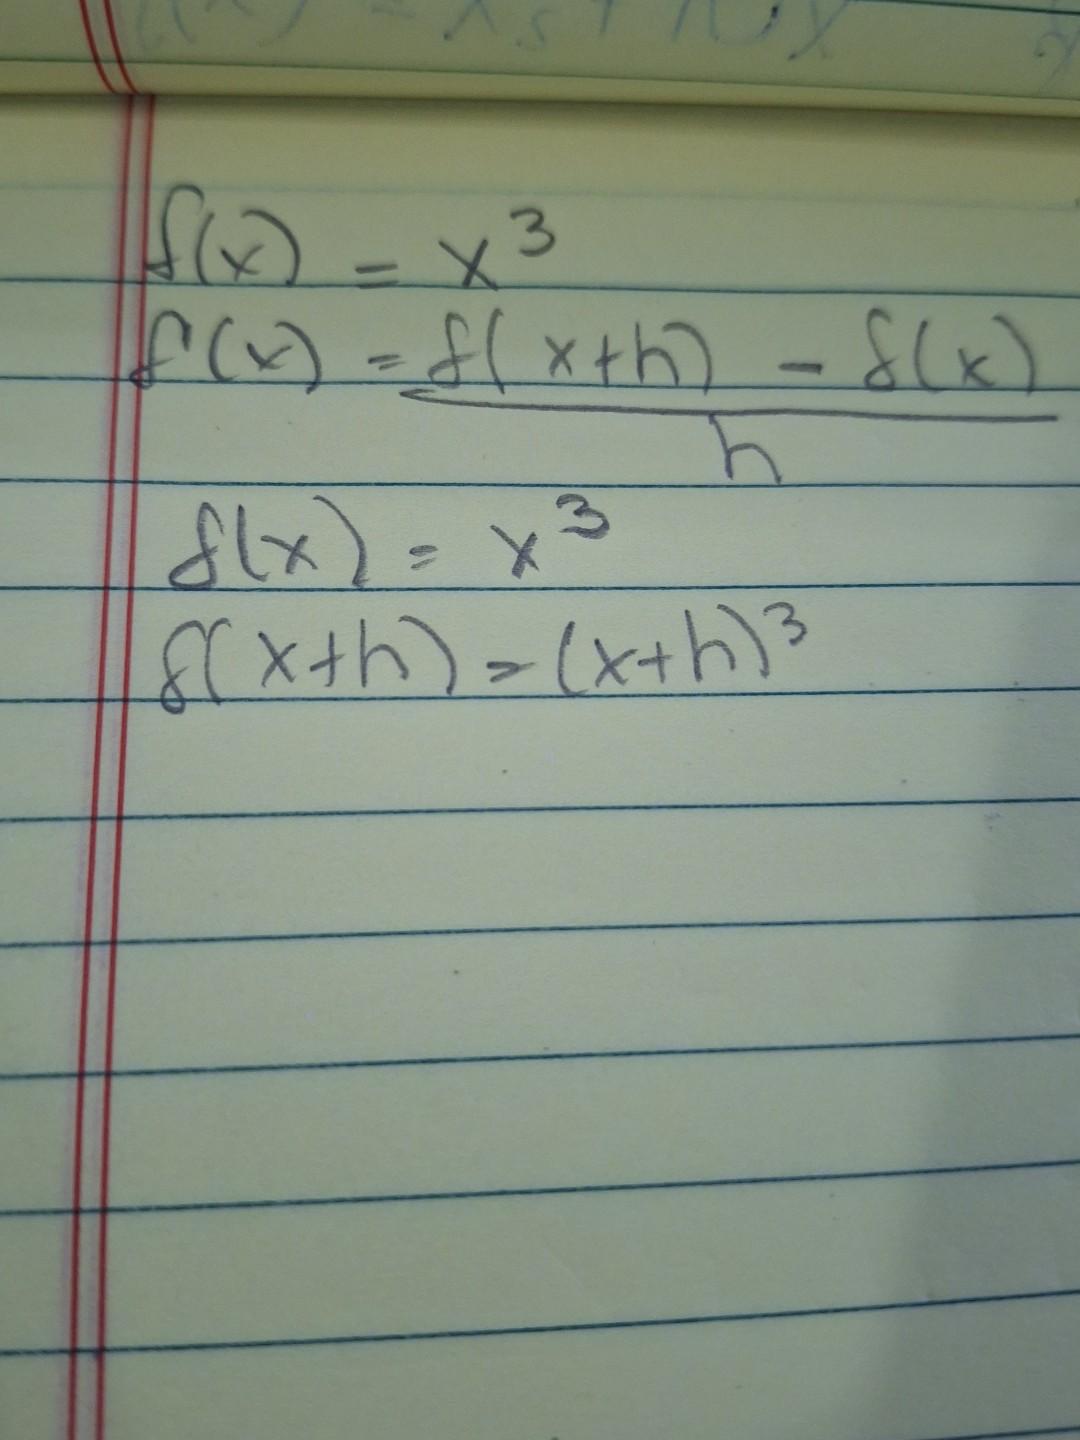 f(x) = x³
f'(x) = f(x+h) - f(x)
h
f(x) = x³
f(x+h) = (x+h)³